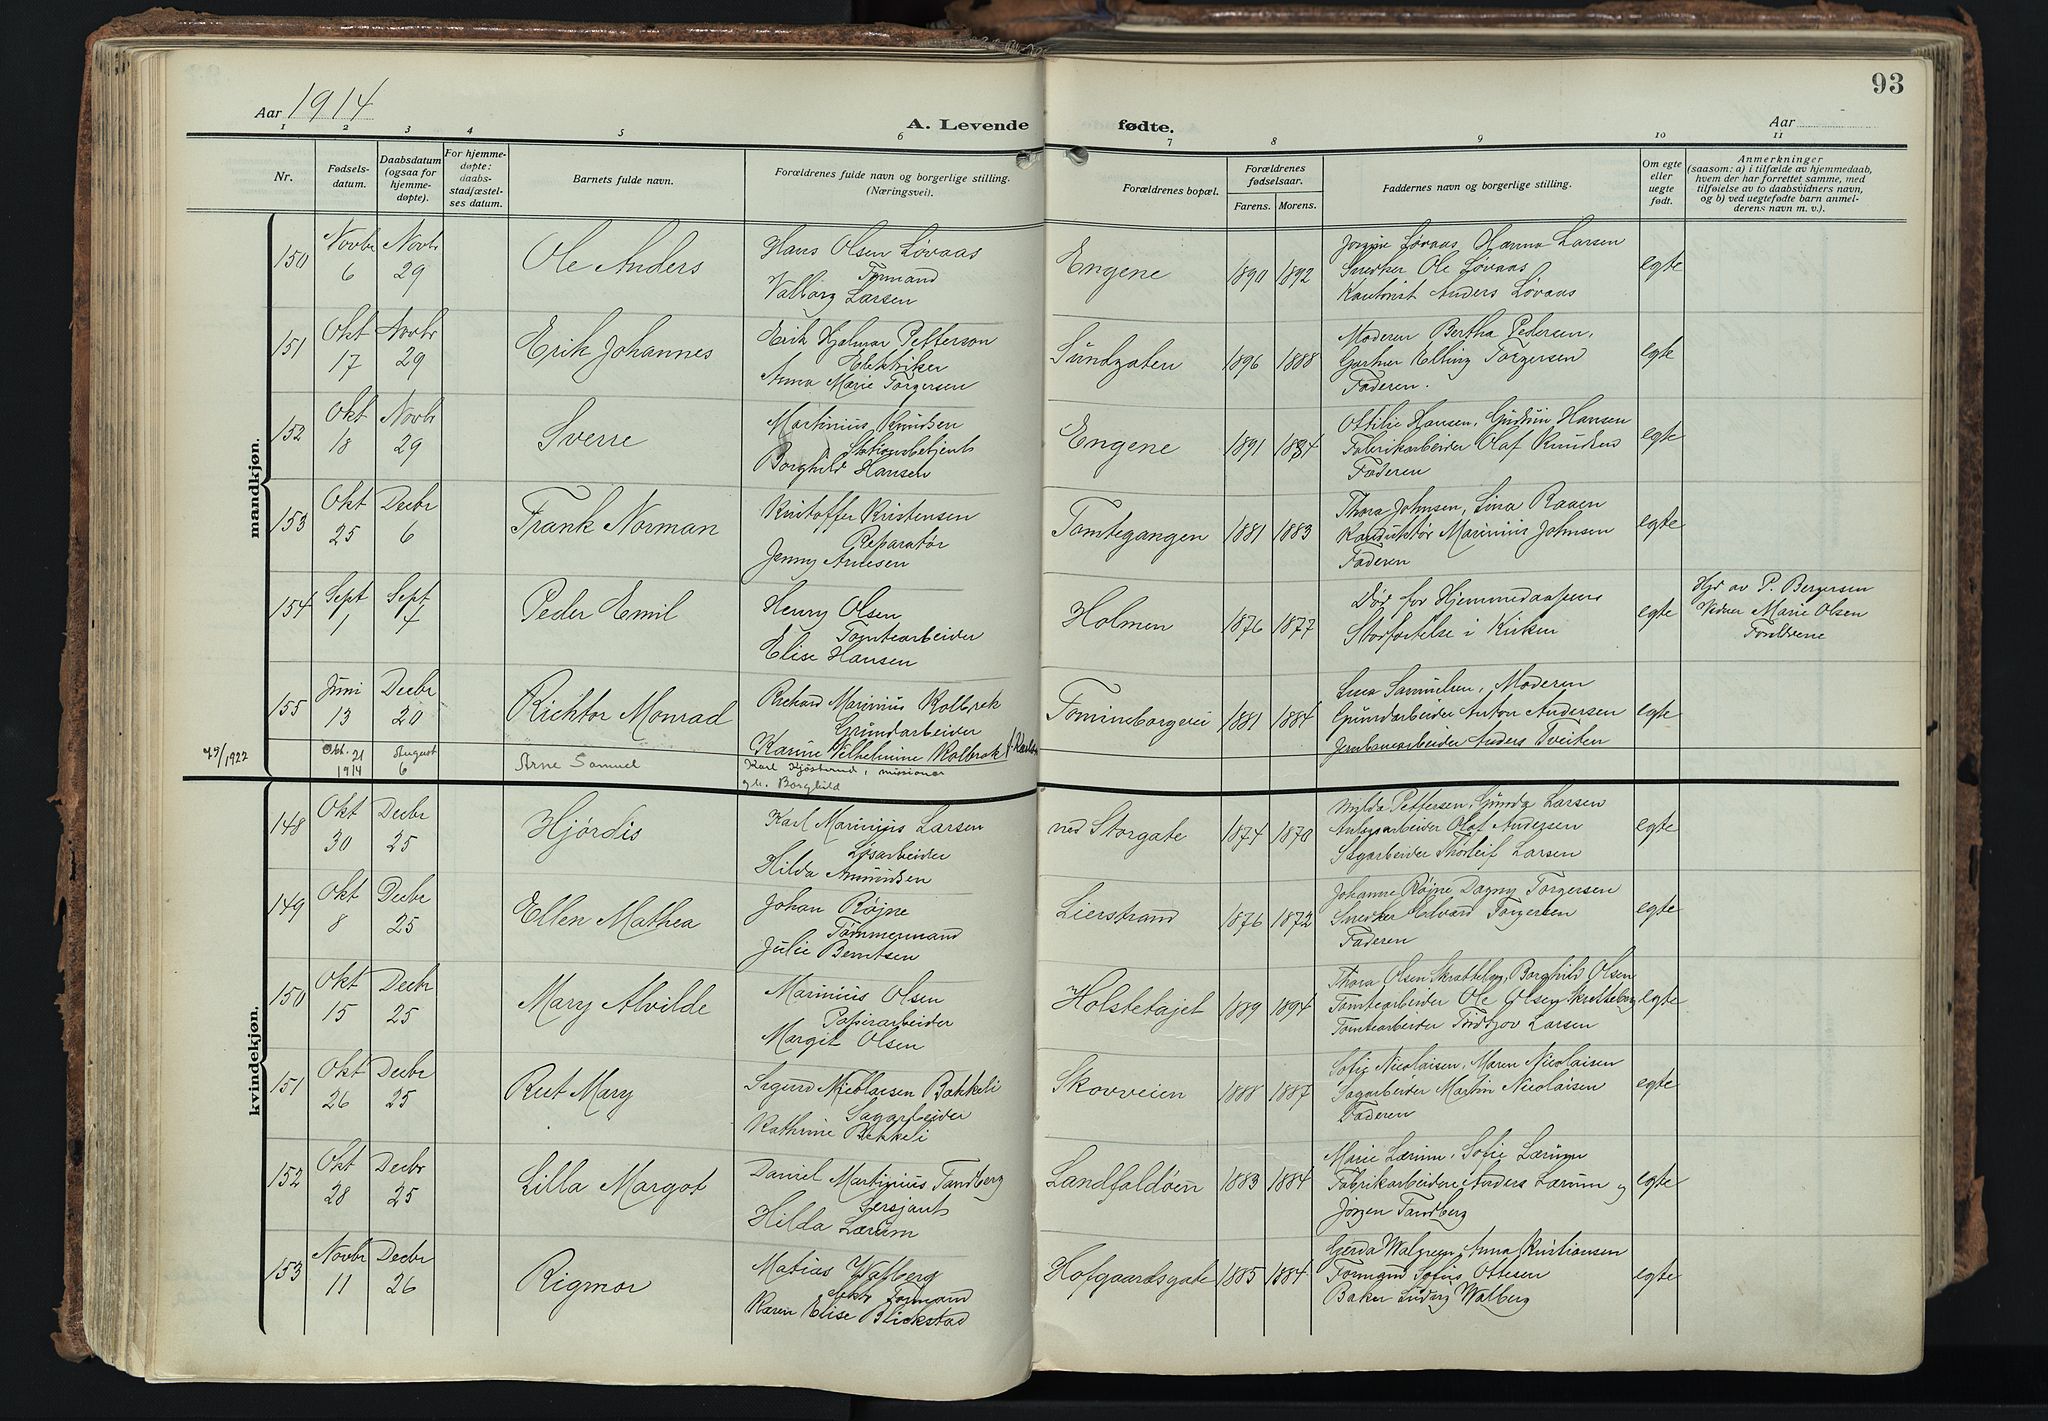 93
Aar 1914
A. Levende fødte.
Aar
1 2 3 4 5 6 7 8 9 10 11
Nr.
Fødsels-
datum.
Daabsdatum
(ogsaa for
hjemme-
døpte).
For hjemme-
døpte:
daabs-
stadfæstel-
ses datum.
Barnets fulde navn.
Forældrenes fulde navn og borgerlige stilling.
(Næringsvei).
Forældrenes bopæl.
Forældrenes
fødselsaar.
Farens. Morens.
Faddernes navn og borgerlige stilling.
Om egte
eller
uegte
født.
Anmerkninger
(saasom: a) i tilfælde av hjemmedaab,
hvem der har forrettet samme, med
tilføielse av to daabsvidners navn,
og b) ved uegtefødte barn anmel-
derens navn m. v.).
mandkjøn.
150
Novbr
6
Novbr
29
Ole Anders
Hans Olsen Løvaas
Formand
Valborg Larsen
Engene
1890
1892
Løvaas Hanna Larsen
Snedker Ole Løvaas
Kontorist Anders Løvaas
egte
151
Okt
17
Novbr
29
Erik Johannes
Erik Hjalmar Petterson
Elektriker
Anna Marie Torgersen
Sundgaten
1896
1888
Moderen Bertha Pedersen,
Gartner Elling Torgersen
Faderen.
egte
152
Okt
18
Novbr
29
Sverre
Martinius Knudsen
Stationsbetjent
Borghild Hansen
Engene
1891
Ottilie Hansen, Gudrun Hansen
Fabrikarbeider Olaf Knudsen
Faderen
egte
153
Okt
25
Decbr
6
Frank Norman
Kristoffer Kristensen
Reparatør
Jenny Antesen
Tomtegangen
1881
1883
Thora Johnsen, Lina Raaen
Konduktør Marinius Johnsen
Faderen
egte
154
Sept
1
Sept
4
Peder Emil
Henry Olsen
Tomtearbeider
Elise Hansen
Holmen
1876
1877
Død før Hjemmedaapens
Stadfestelse i Kirken
egte
Hjd av P. Bergersen
Vidner Marie Olsen
Forældrene
155
Juni
13
Decbr
20
Richtor Monrad
Richard Marinius Kolbrek
Grundarbeider
Karine Vilhelmine Kolbrek
Tømmeborgvei
1881
1884
Lina Samuelsen, Moderen
Grundarbeider Anton Andersen
Jernbanearbeider Anders Tveiten
egte
79/1922
Okt. 21
1914
August
6
Arne Samuel
Karl Kjøstrud, missionær
Borghild
kvindekjøn.
148
Okt
30
Decbr
25
Hjørdis
Karl Marinius Larsen
Løsarbeider
Hilda Amundsen
ved Storgate
1874
1870
Mylda Pettersen, Gunda Larsen
Anlægsarbeider Olaf Andersen
Sagarbeider Thorleif Larsen
egte
149
Okt
8
Decbr
25
Ellen Mathea
Johan Røine
Tømmermand
Julie Berntsen
Lierstrand
1876
1872
Johanne Røine Dagny Torgersen
Snedker Halvard Torgersen
Faderen
egte
150
Okt
15
Decbr
25
Mary Alvilde
Marinius Olsen
Papirarbeider
Margit Olsen
Holstetajet
1889
1894
Thora Olsen Skretteberg, Borghild Olsen
Tomtearbeider Ole Olsen Skretteberg
Tomtearbeider Fridtjov Larsen
egte
151
Okt
26
Decbr
25
Rut Mary
Sigurd Nicolaisen Bakkeli
Sagarbeider
Kathrine Bakkeli
Skovveien
1888
1887
Sofie Nicolaisen, Maren Nicolaisen
Sagarbeider Martin Nicolaisen
Faderen
egte
152
Okt
28
Decbr
25
Lilla Margot
Daniel Martinius Tandberg
Sersjant
Hilda Lærum
Landfaldøen
1883
1884
Marie Lærum, Sofie Lærum
Fabrikarbeidere Anders Lærum og
Jørgen Tandberg
egte
153
Novbr
11
Decbr
26
Rigmor
Matias Walberg
Formand
Karen Elise Blickstad
Hofgaardsgate
1885
1884
Gerda Walgreen, Anna Kristiansen
Formand Sofus Ottesen
Baker Ludvig Walberg
egte